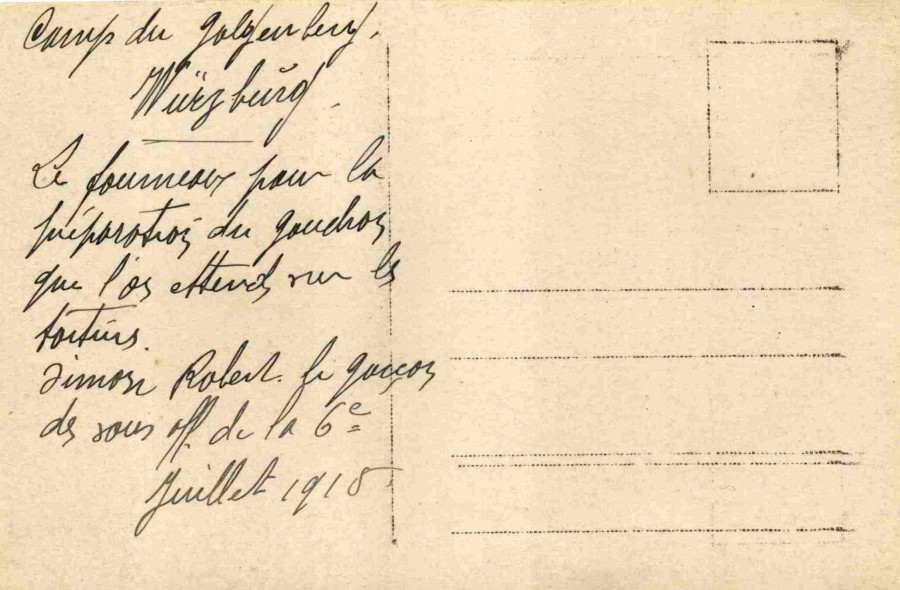 Camp du Galgenberg.
Würzburg.
Le fourneau pour la
préparation du goudron
que l'on étend sur les
toitures.
Simon Robert. le garçon
des sous off. de la 6e
Juillet 1915